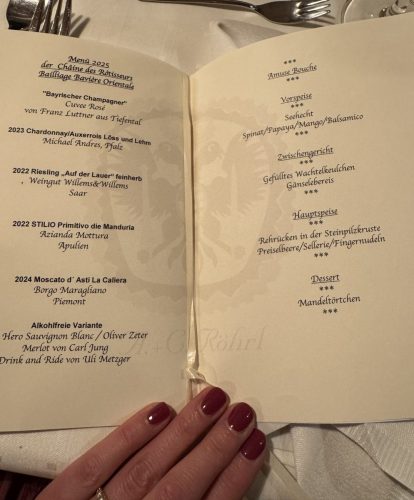 Menü 2025
der Chaîne des Rôtisseurs
Bailliage Bavière Orientale
"Bayrischer Champagner"
Cuvee Rosé
von Franz Luttner aus Tiefental
2023 Chardonnay/Auxerrois Löss und Lehm
Michael Andres, Pfalz
2022 Riesling „Auf der Lauer" feinherb
Weingut Willems&Willems
Saar
2022 STILIO Primitivo die Manduria
Azianda Mottura
Apulien
2024 Moscato d´ Asti La Caliera
Borgo Maragliano
Piemont
Alkohlfreie Variante
Hero Sauvignon Blanc / Oliver Zeter
Merlot von Carl Jung
Drink and Ride von Uli Metzger
***
Amuse Bouche
***
Vorspeise
***
Seehecht
Spinat/Papaya/Mango/Balsamico
***
Zwischengericht
***
Gefülltes Wachtelkeulchen
Gänselebereis
***
Hauptspeise
***
Rehrücken in der Steinpilzkruste
Preiselbeere/Sellerie/Fingernudeln
***
Dessert
***
Mandeltörtchen
***
Röhrl